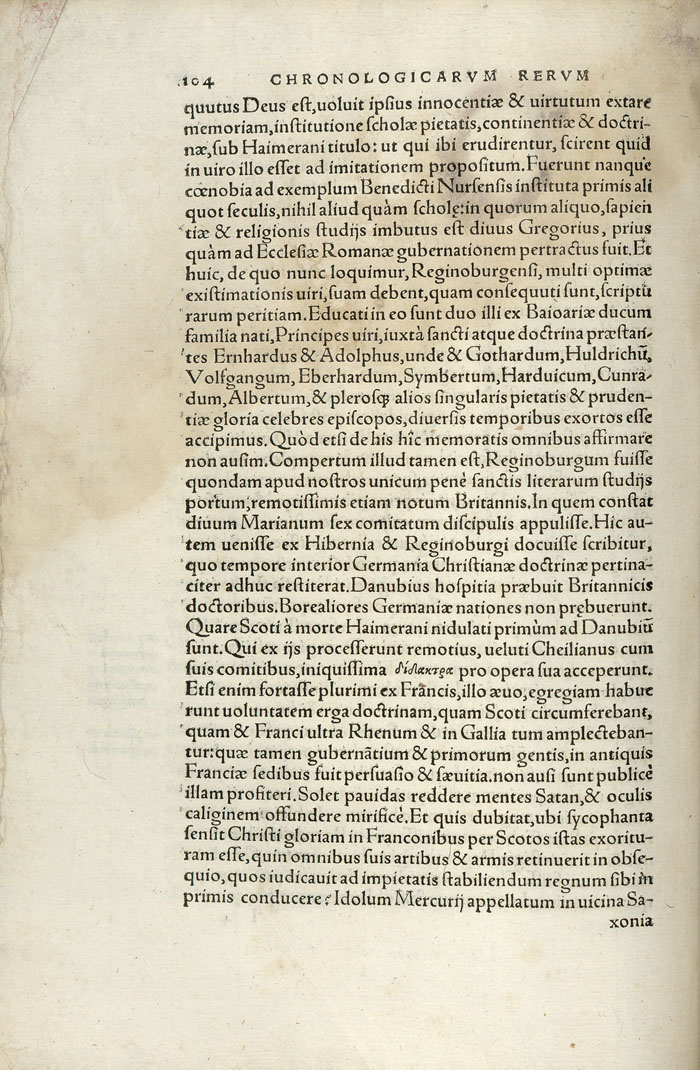 104 CHRONOLOGICARVM RERVM
quutus Deus est,uoluit ipsius innocentiæ & uirtutum extare
memoriam,institutione scholæ pietatis,continentiæ & doctri-
næ,sub Haimerani titulo: ut qui ibi erudirentur, scirent quid
in uiro illo esset ad imitationem propositum.Fuerunt nanque
cœnobia ad exemplum Benedicti Nursensis instituta primis ali
quot seculis,nihil aliud quàm scholę:in quorum aliquo,sapien
tiæ & religionis studijs imbutus est diuus Gregorius, prius
quàm ad Ecclesiæ Romanæ gubernationem pertractus fuit.Et
huic, de quo nunc loquimur, Reginoburgensi, multi optimæ
existimationis uiri,suam debent,quam consequuti sunt,scriptu
rarum peritiam.Educati in eo sunt duo illi ex Baioariæ ducum
familia nati,Principes uiri,iuxtà sancti atque doctrina præstan-
tes Ernhardus & Adolphus,unde & Gothardum,Huldrichū,
Volfgangum, Eberhardum, Symbertum, Harduicum, Cunra-
dum,Albertum,& plerosq; alios singularis pietatis & pruden-
tiæ gloria celebres episcopos,diuersis temporibus exortos esse
accipimus.Quòd etsi de his hîc memoratis omnibus affirmare
non ausim.Compertum illud tamen est,Reginoburgum fuisse
quondam apud nostros unicum penè sanctis literarum studijs
portum,remotissimis etiam notum Britannis.In quem constat
diuum Marianum sex comitatum discipulis appulisse.Hic au-
tem uenisse ex Hibernia & Reginoburgi docuisse scribitur,
quo tempore interior Germania Christianæ doctrinæ pertina-
citer adhuc restiterat.Danubius hospitia præbuit Britannicis
doctoribus.Borealiores Germaniæ nationes non prębuerunt.
Quare Scoti à morte Haimerani nidulati primùm ad Danubiū
sunt.Qui ex ijs processerunt remotius, ueluti Cheilianus cum
suis comitibus,iniquissima δίδακτρα pro opera sua acceperunt.
Etsi enim fortasse plurimi ex Francis,illo æuo,egregiam habue
runt uoluntatem erga doctrinam,quam Scoti circumferebant,
quam & Franci ultra Rhenum & in Gallia tum amplecteban-
tur:quæ tamen gubernãtium & primorum gentis,in antiquis
Franciæ sedibus fuit persuasio & sæuitia.non ausi sunt publicè
illam profiteri.Solet pauidas reddere mentes Satan,& oculis
caliginem offundere mirificè.Et quis dubitat,ubi sycophanta
sensit Christi gloriam in Franconibus per Scotos istas exoritu-
ram esse,quin omnibus suis artibus & armis retinuerit in obse-
quio,quos iudicauit ad impietatis stabiliendum regnum sibi in
primis conducere? Idolum Mercurij appellatum in uicina Sa-
xonia